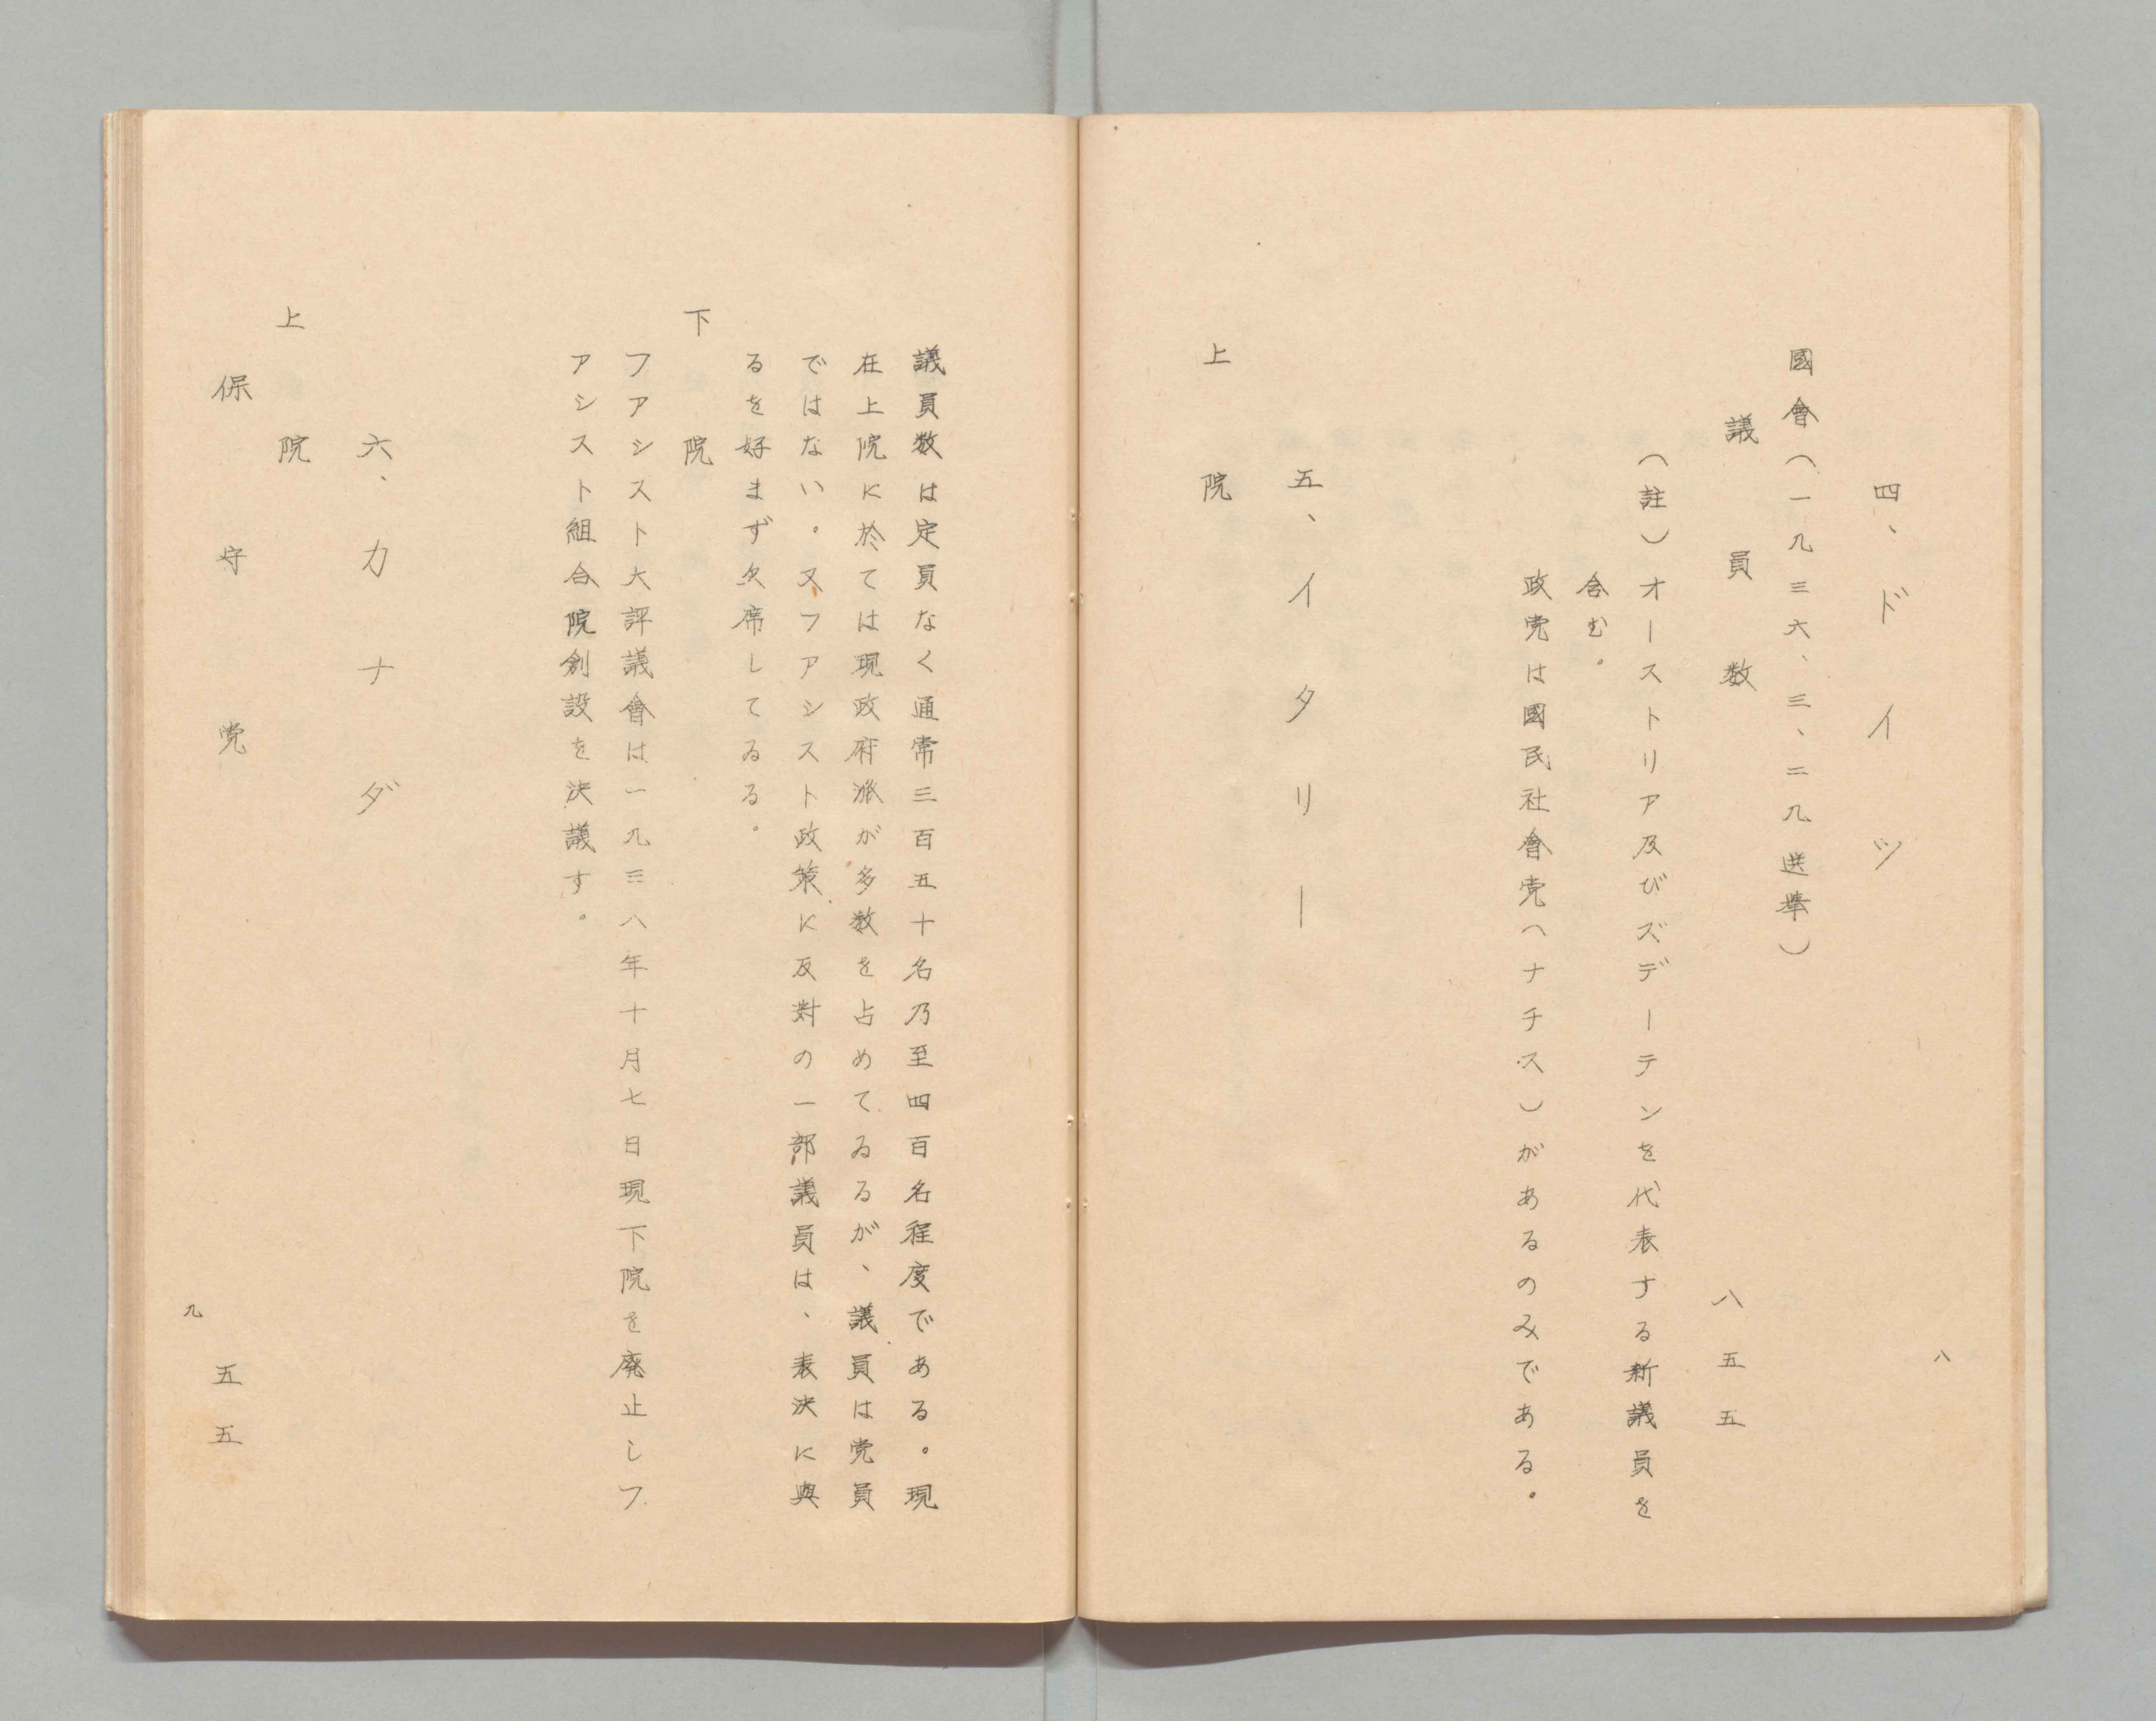 四、ドイツ
國會（一九三六、三、二九選挙）
議員数　八五五
（註）オーストリア及びズデーテンを代表する新議員を
含む。
政党は國民社會党（ナチス）があるのみである。
五、イタリー
上院
八
議員数は定員なく通常三百五十名乃至四百名程度である。現
在上院に於ては現政府派が多数を占めてゐるが、議員は党員
ではない。又フアシスト政策に反対の一部議員は、表決に與
るを好まず欠席してゐる。
下院
フアシスト大評議會は一九三八年十月七日現下院を廃止しフ
アシスト組合院創設を決議す。
六、カナダ
上院
保守党　五五
九